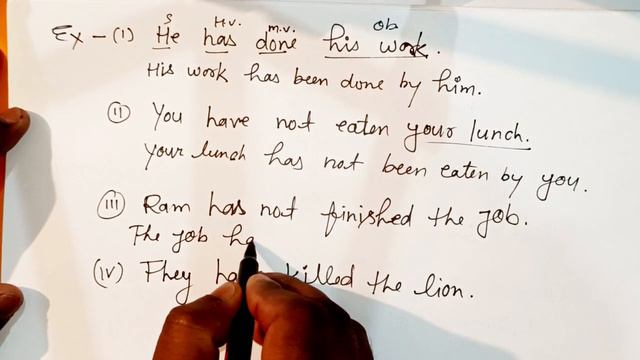 S H.V. m.v. ob
Ex - (1) He has done his work.
His work has been done by him.
(ii) You have not eaten your lunch.
Your lunch has not been eaten by you.
(iii) Ram has not finished the job.
The job ha
(iv) They killed the lion.